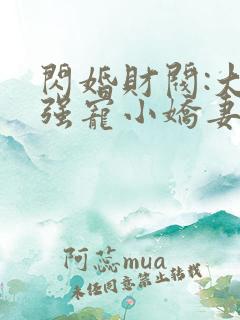 閃婚財閥:大
强寵小嬌妻
阿蕊mua
未任同意禁止转载